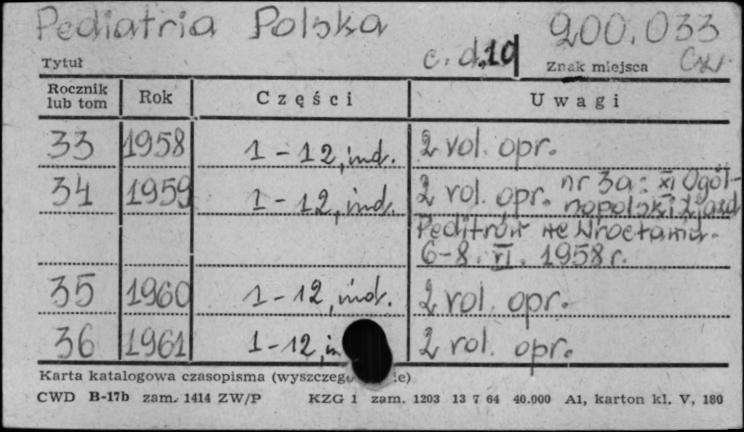 Pediatria Polska 200.033
Tytuł c.d. 10 Znak miejsca Cz.
Rocznik lub tom Rok Części Uwagi
33 1958 1-12, ind. 2 vol. opr.
34 1959 1-12, ind. 2 vol. opr. nr 3a: XI Ogól-
nopolski Zjazd
Peditrów we Wrocławiu.
6-8. VI. 1958 r.
35 1960 1-12, ind. 2 vol. opr.
36 1961 1-12, in 2 vol. opr.
Karta katalogowa czasopisma (wyszczegó ie)
CWD B-17b zam. 1414 ZW/P KZG 1 zam. 1203 13 7 64 40.000 A1, karton kl. V, 180